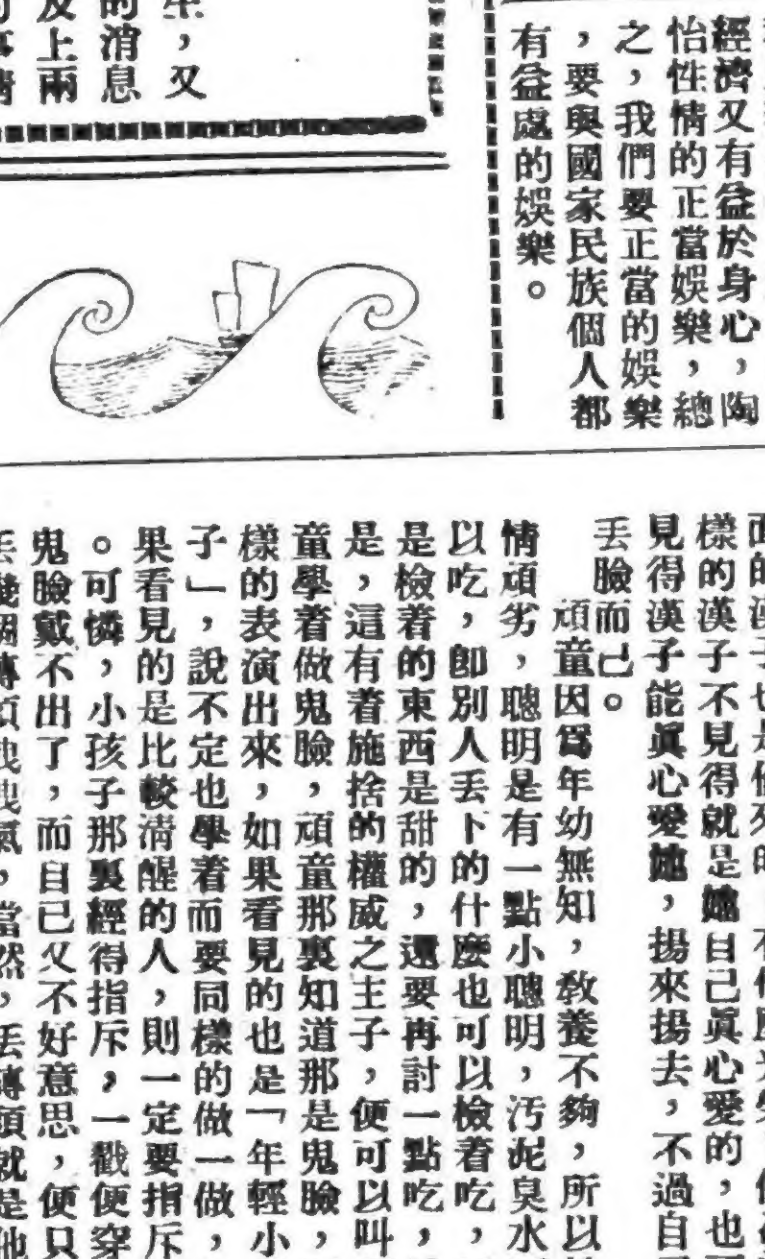 經濟又有益於身心，陶
怡性情的正當娛樂，總
之，我們要正當的娛樂
，要與國家民族個人都
有益處的娛樂。
生，又
的消息
及上兩
樣的漢子不見得就是她自己眞心愛的，也
見得漢子能眞心愛她，揚來揚去，不過自
丟臉而已。
頑童因爲年幼無知，敎養不夠，所以
情頑劣，聰明是有一點小聰明，汚泥臭水
以吃，卽別人丟下的什麼也可以檢着吃，
是檢着的東西是甜的，還要再討一點吃，
是，這有着施捨的權威之主子，便可以叫
童學着做鬼臉，頑童那裏知道那是鬼臉，
樣的表演出來，如果看見的也是「年輕小
子」，說不定也學着而要同樣的做一做，
果看見的是比較淸醒的人，則一定要指斥
。可憐，小孩子那裏經得指斥，一戳便穿
鬼臉戴不出了，而自己又不好意思，便只
丟幾個磚頭洩洩氣，當然，丟磚頭就是他